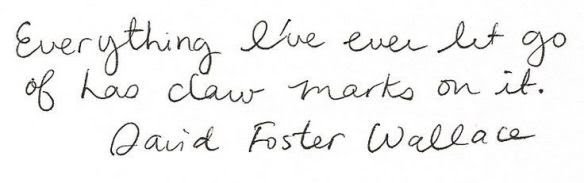 Everything I've ever let go
of has claw marks on it.
David Foster Wallace